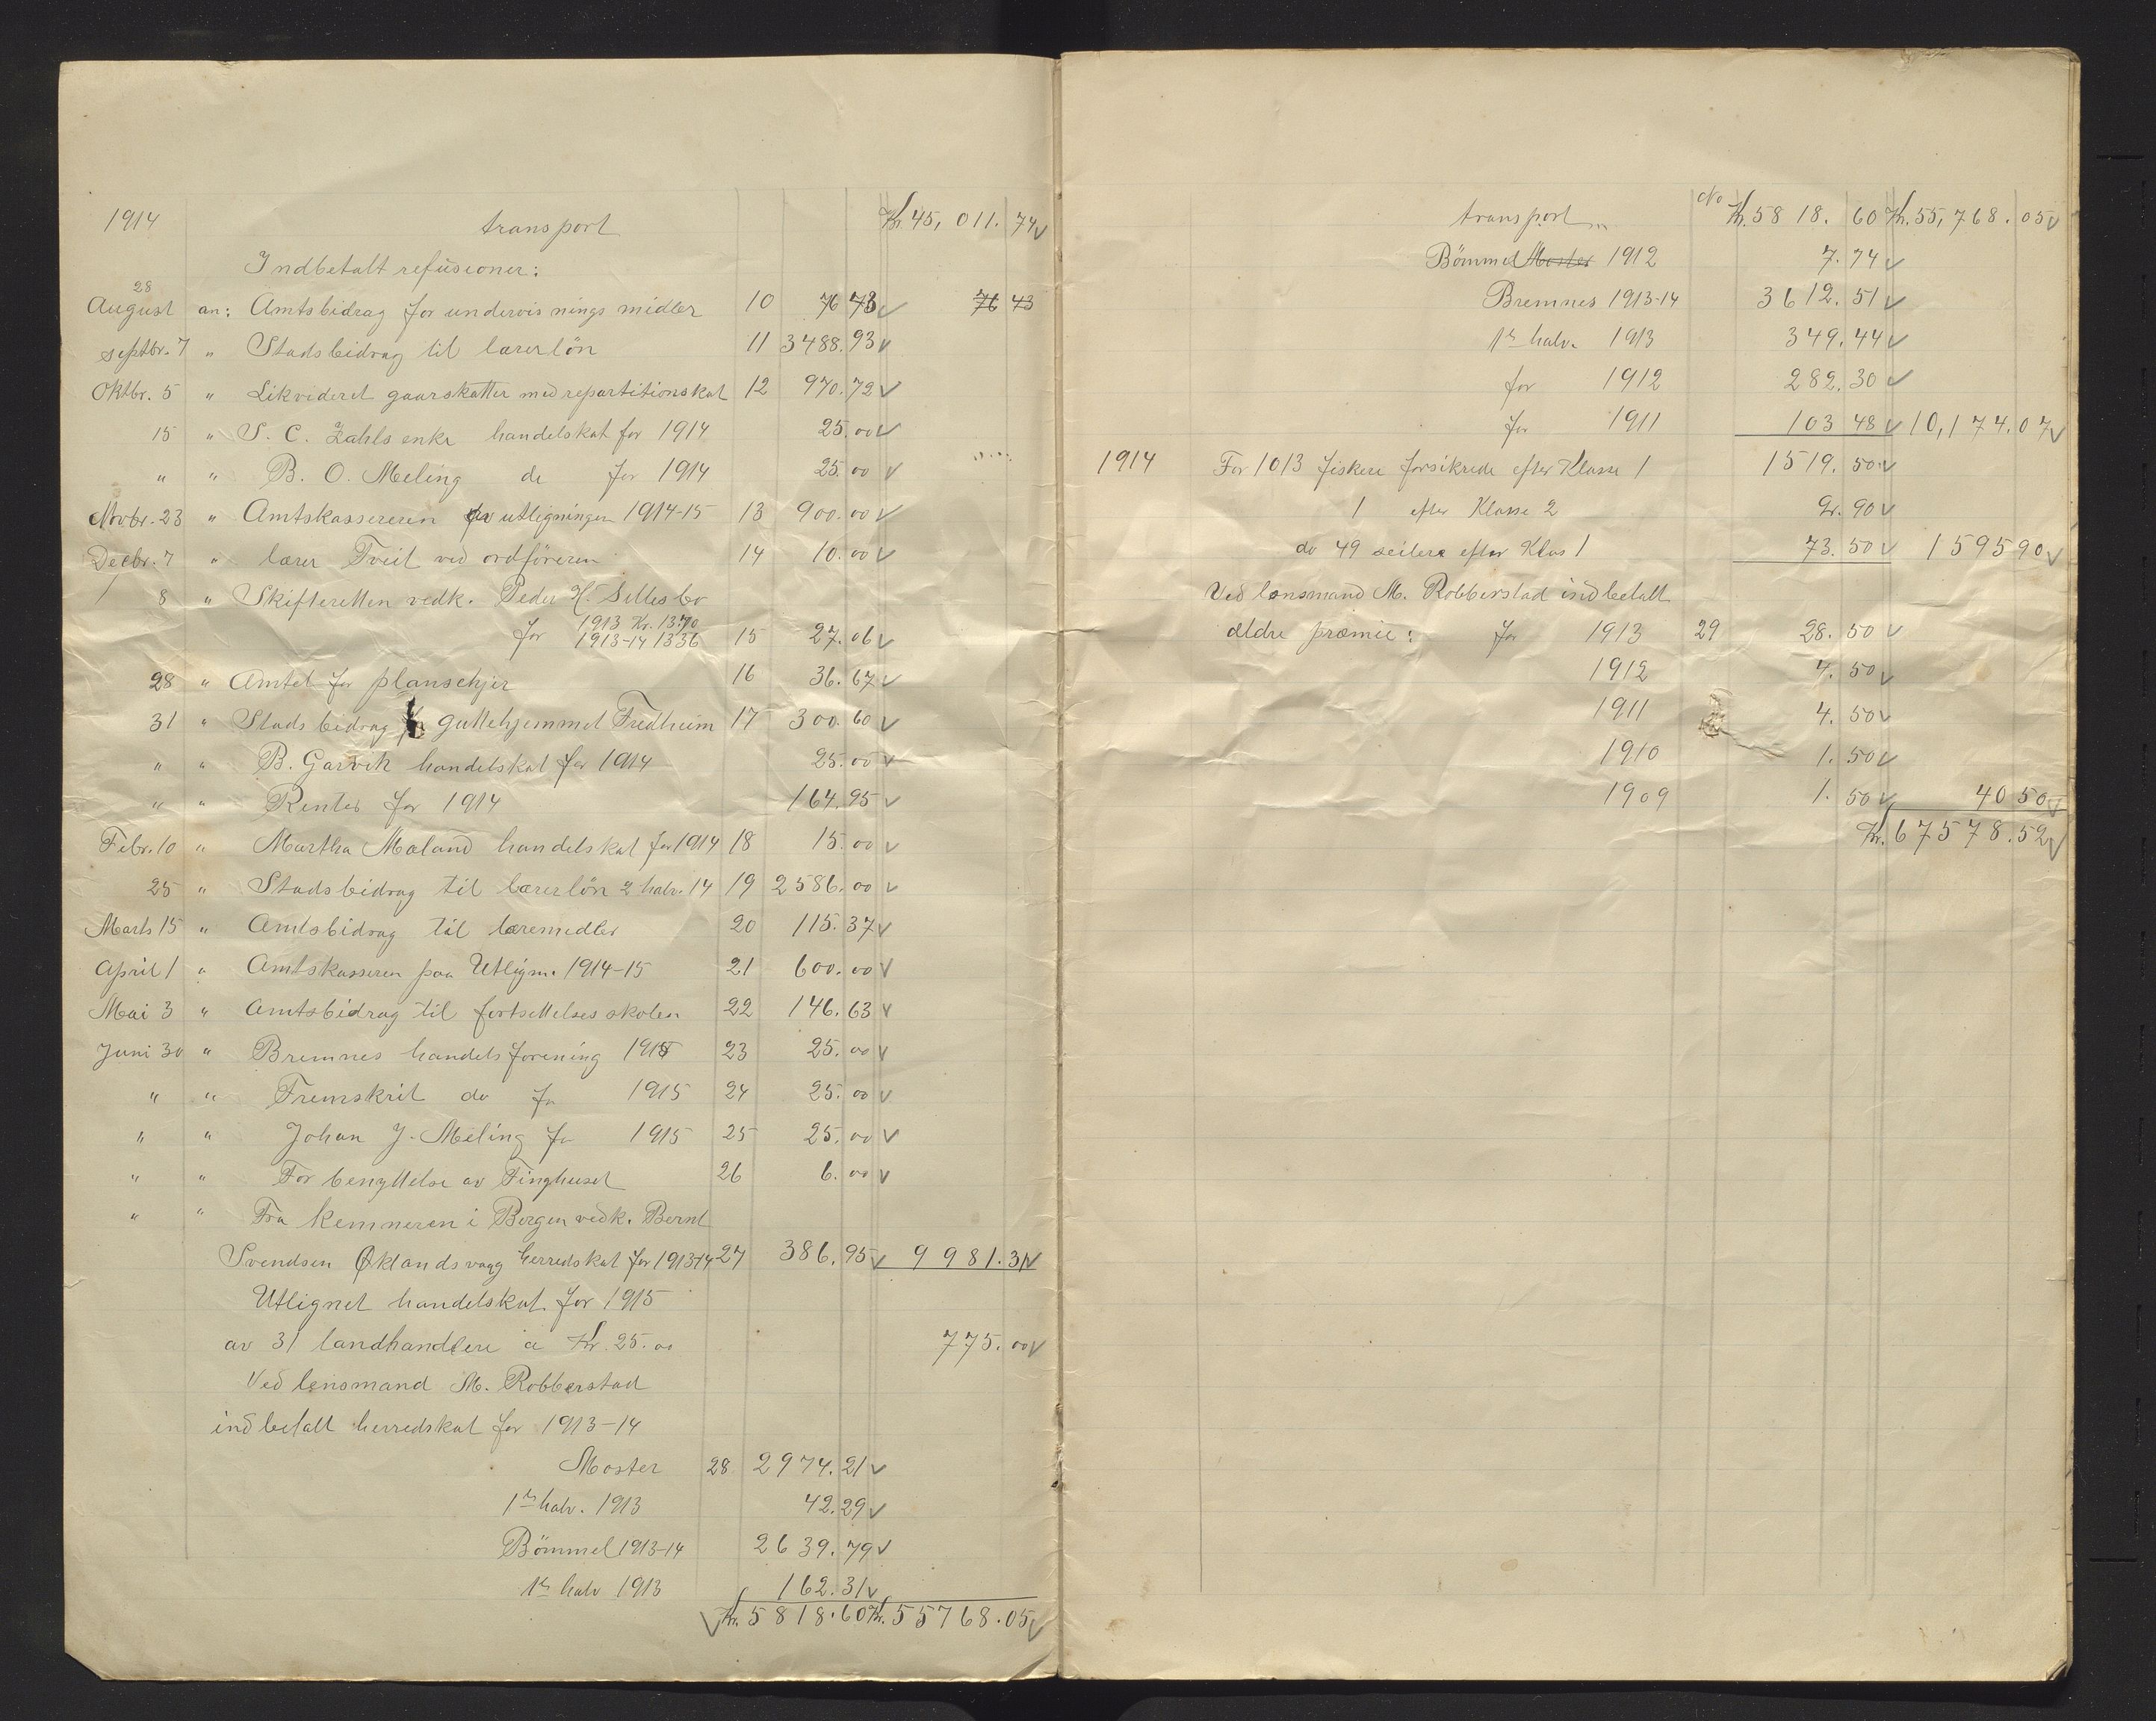 1914 transport Kr. 45,011.74
Indbetalt refusioner:
28
August an: Amtsbidrag for undervisnings midler 10 76 43 76 43
septbr. 7 " Stadsbidrag til lærerlön 11 3488.93
Oktbr. 5 " Likvideret gaarskatter med repartitionskat 12 970.72
15 " S. C. Zahls enke handelskat for 1914 25.00
" " B. O. Meling do for 1914 25.00
Novbr. 23 " Amtskassereren for utligningen 1914-15 13 900.00
Decbr. 7 " lærer Tveit ved ordföreren 14 10.00
8 " Skifteretten vedk. Peder H. Sellesbö
1913 Kr. 13.70
for 1913-14 13 36 15 27.06
28 " Amtet for planschjer 16 36.67
31 " Stads bidrag guttehjemmet Fredheim 17 300.60
" " B. Garvik handelskat for 1914 25.00
" " Renter for 1914 164.95
Febr. 10 " Martha Maland handelskat for 1914 18 15.00
25 " Stadsbidrag til lærerlön 2 halv. 14 19 2586.00
Marts 15 " Amtsbidrag til læremidler 20 115.37
April 1 " Amtskasseren paa Utlign. 1914-15 21 600.00
Mai 3 " Amtsbidrag til fortsettelses skolen 22 146.63
Juni 30 " Bremnes handelsforening 1915 23 25.00
" " Fremskrit do for 1915 24 25.00
" " Johan J. Meling for 1915 25 25.00
" " For benyttelse av Tinghuset 26 6.00
" " Fra kemneren i Bergen vedk. Bernt
Svendsen Øklandsvaag herredskat for 1913-14 27 386.95 9981.31
Utlignet handelskat for 1915
av 31 landhandlere a Kr. 25.00 775.00
Ved lensmand M. Robberstad
indbetalt herredskat for 1913-14
Moster 28 2974.21
1ste halv. 1913 42.29
Bömmel 1913-14 2639.79
1ste halv 1913 162.31
Kr. 5818.60 Kr. 55768.05
transport No Kr. 5818.60 Kr. 55,768.05
Bömmel Moster 1912 7.74
Bremnes 1913-14 3612.51
1ste halv. 1913 349.44
for 1912 282.30
for 1911 103 48 10,174.07
1914 For 1013 fiskere forsikrede efter Klasse 1 1519.50
1 efter Klasse 2 2.90
do 49 seilere efter Klas 1 73.50 1595 90
Ved lensmand M. Robberstad indbetalt
ældre præmie: for 1913 29 28.50
1912 4.50
1911 4.50
1910 1.50
1909 1.50 40 50
Kr. 67578.52